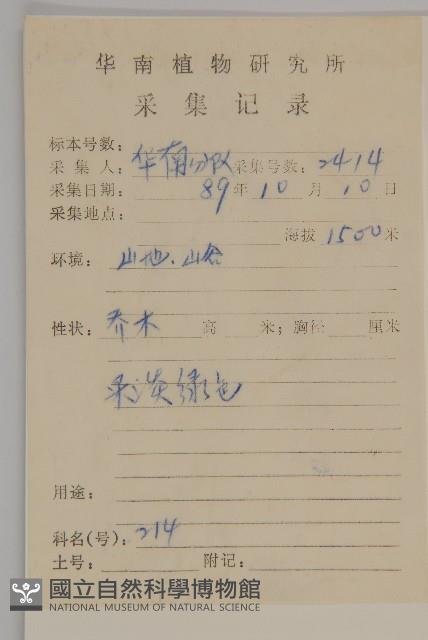 华南植物研究所
采集记录
标本号数:
采集人: 华南分队 采集号数: 2414
采集日期: 89 年 10 月 10 日
采集地点:
海拔 1500 米
环境: 山地.山谷
性状: 乔木 高 米; 胸径 厘米
果淡绿色
用途:
科名(号): 214
土号: 附记:
國立自然科學博物館
NATIONAL MUSEUM OF NATURAL SCIENCE